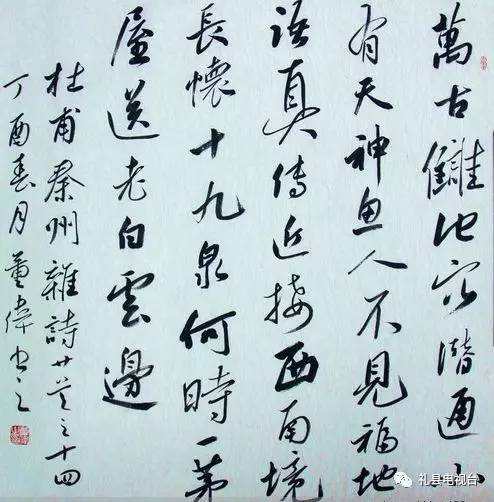 萬古讎池穴潛通小
有天神魚人不見福地
語真傳近接西南境
長懷十九泉何時一茅
屋送老白雲邊
杜甫秦州雜詩廿首之十四
丁酉春月董偉书之
礼县电视台